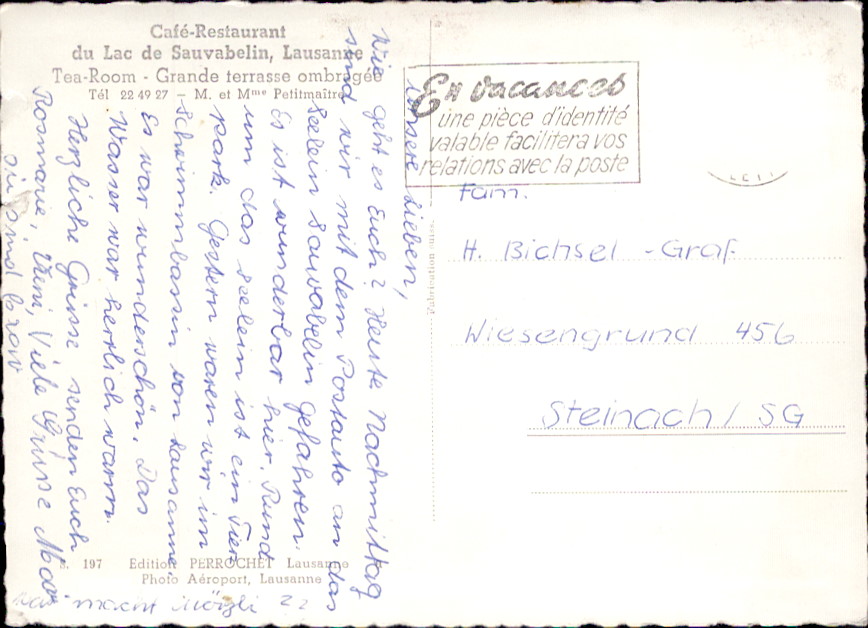 Café-Restaurant
du Lac de Sauvabelin, Lausanne
Tea-Room - Grande terrasse ombragée
Tél 22 49 27 – M. et Mme Petitmaître
Unsere Lieben,
Wie geht es Euch? Heute Nachmittag
sind wir mit dem Postauto an das
Seelein Sauvabelin gefahren.
Es ist wunderbar hier. Rund
um das Seelein ist ein Tier
park. Gestern waren wir im
Schwimmbassin von Lausanne.
Es war wunderschön. Das
Wasser war herrlich warm.
Herzliche Grüsse senden Euch
Rosmarie, Viele Grüsse
sie sind brav
macht 22
197 Edition PERROCHET Lausanne
Photo Aéroport, Lausanne
En vacances
une pièce d'identité
valable facilitera vos
relations avec la poste
Fam.
H. Bichsel - Graf
Wiesengrund 456
Steinach / SG